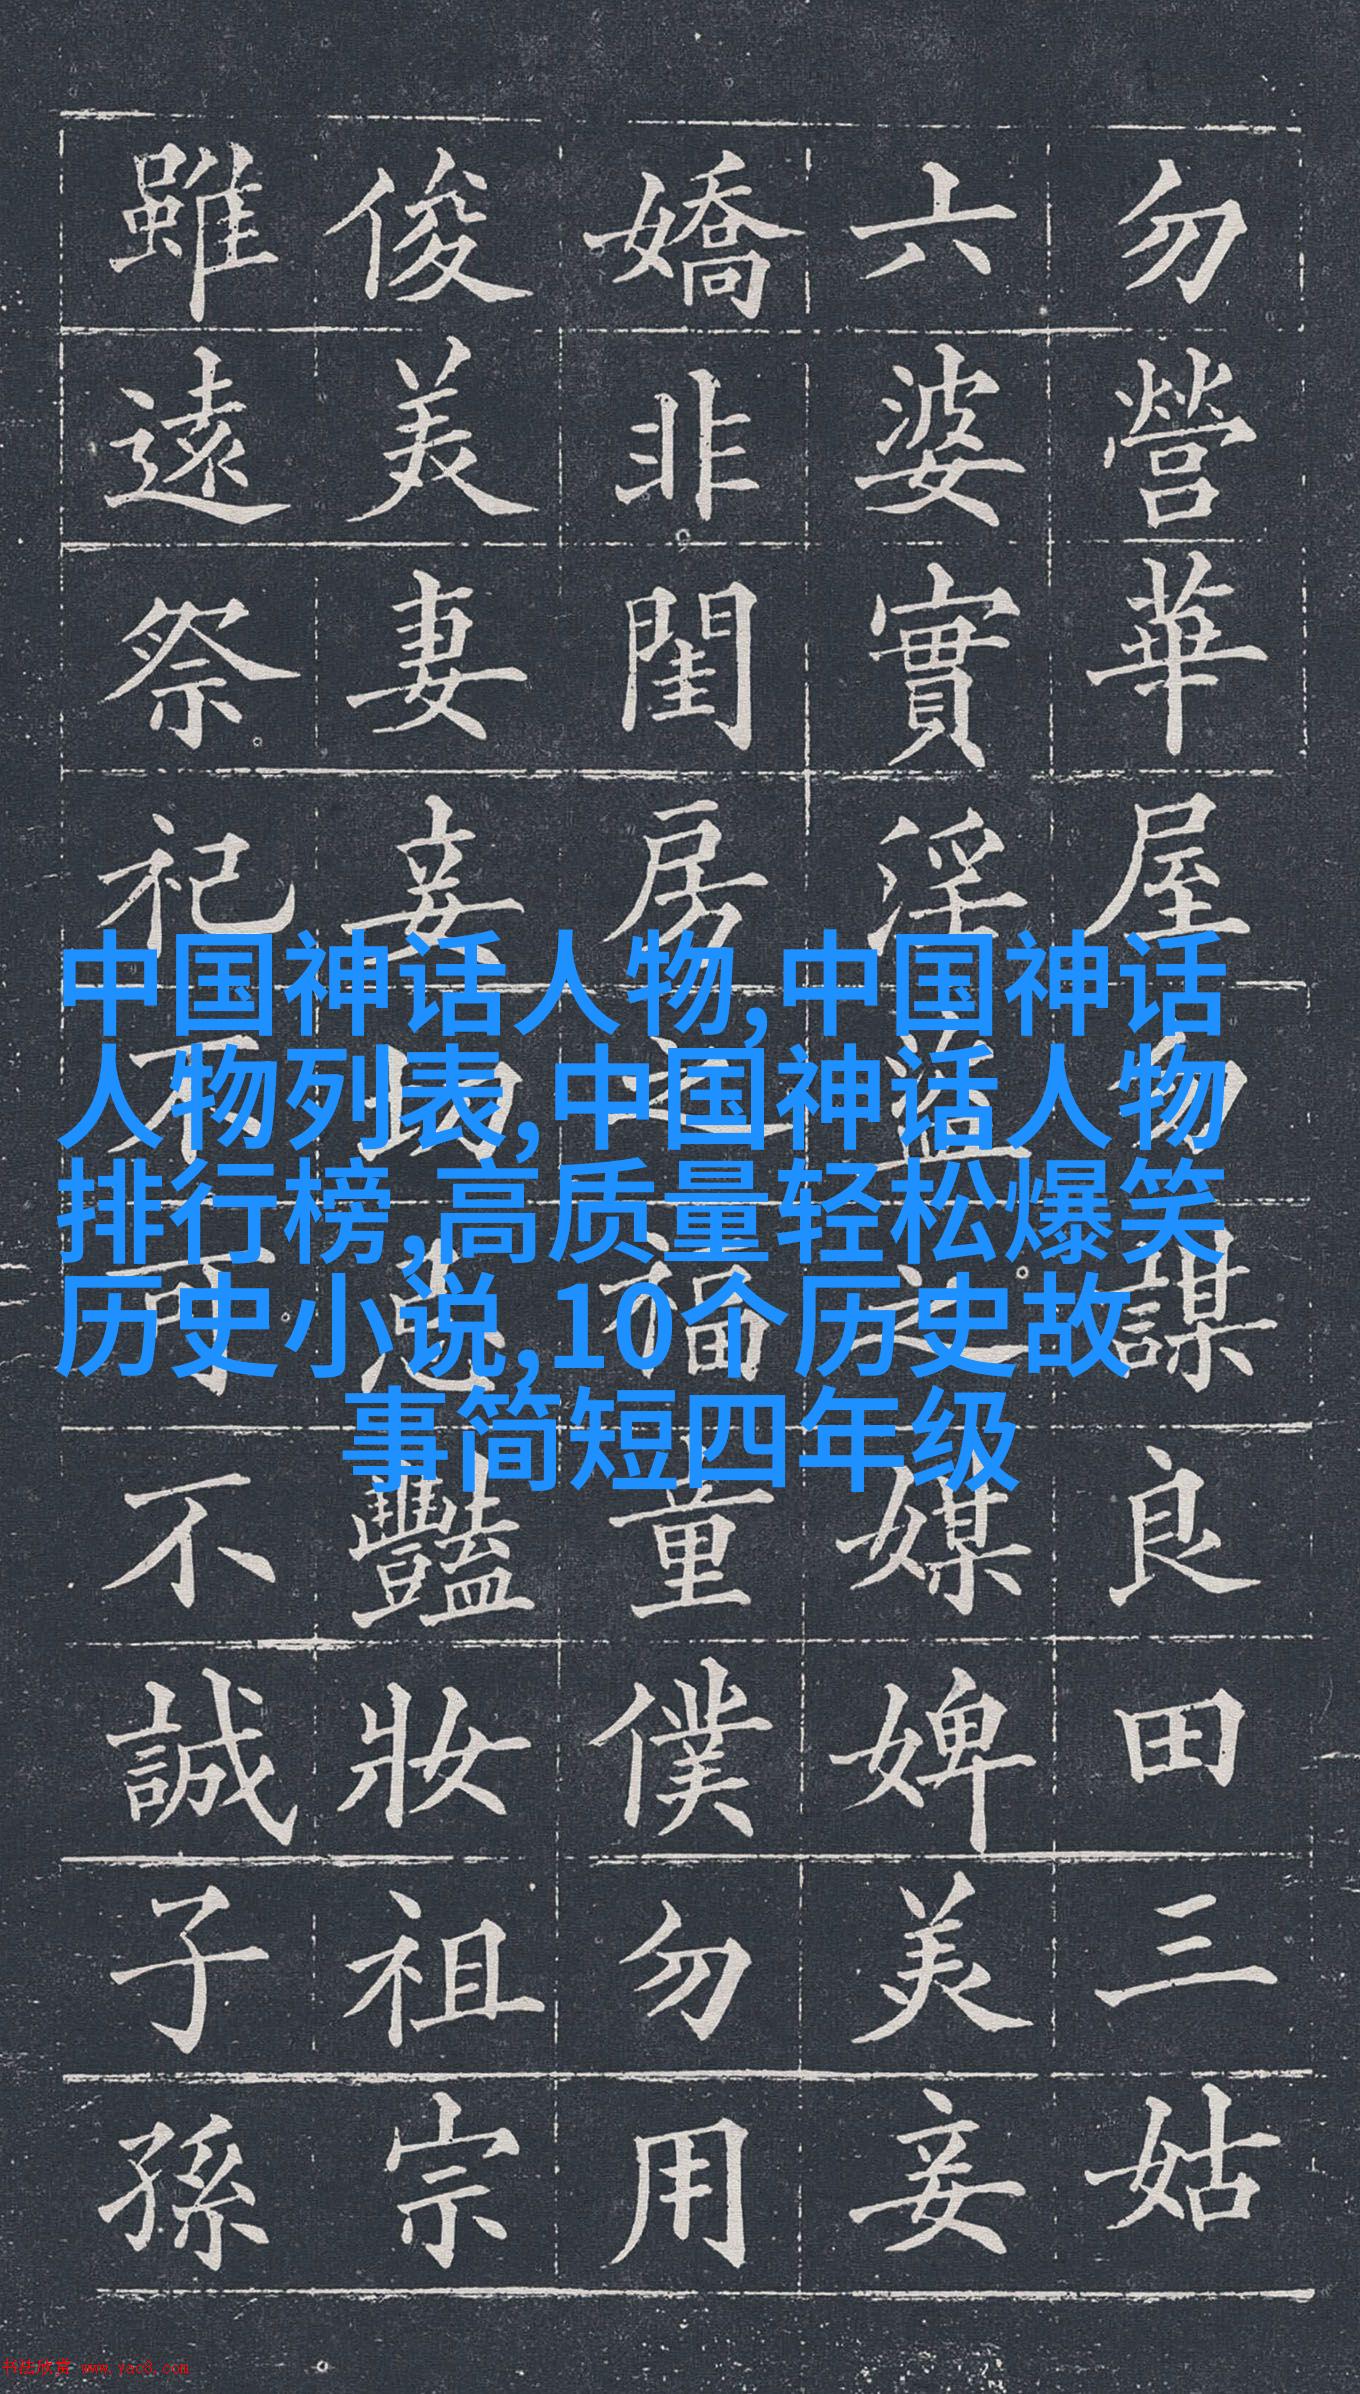 勿營華屋勿謀良田三姑
六婆實淫盜之媒婢美妾
嬌非閨房之福童僕勿用
俊美妻妾切忌豔妝祖宗
雖遠祭祀不可不誠子孫
中国神话人物,中国神话
人物列表,中国神话人物
排行榜,高质量轻松爆笑
历史小说,10个历史故
事简短四年级
书法欣赏 www.yac8.com